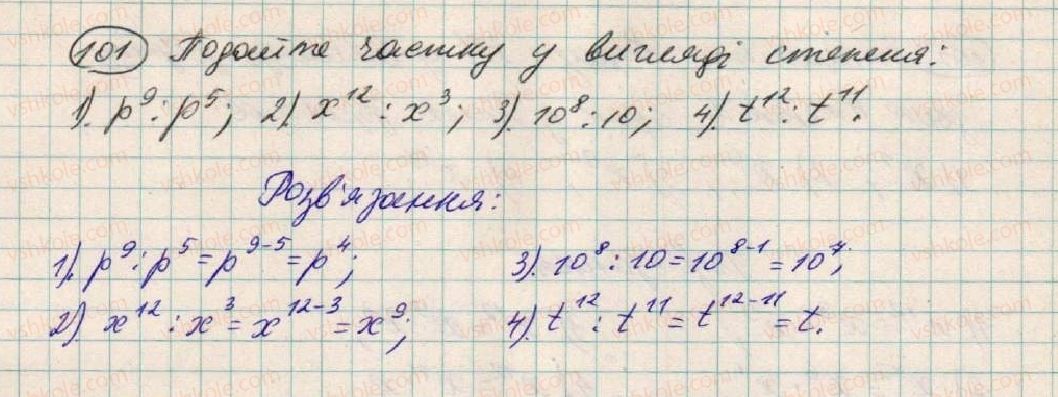 101 Подайте частку у вигляді степеня:
1). p⁹ : p⁵; 2). x¹² : x³; 3). 10⁸ : 10; 4). t¹² : t¹¹.
Розв'язання:
1). p⁹ : p⁵ = p⁹⁻⁵ = p⁴; 3). 10⁸ : 10 = 10⁸⁻¹ = 10⁷;
2) x¹² : x³ = x¹²⁻³ = x⁹; 4). t¹² : t¹¹ = t¹²⁻¹¹ = t.
vshkole.com